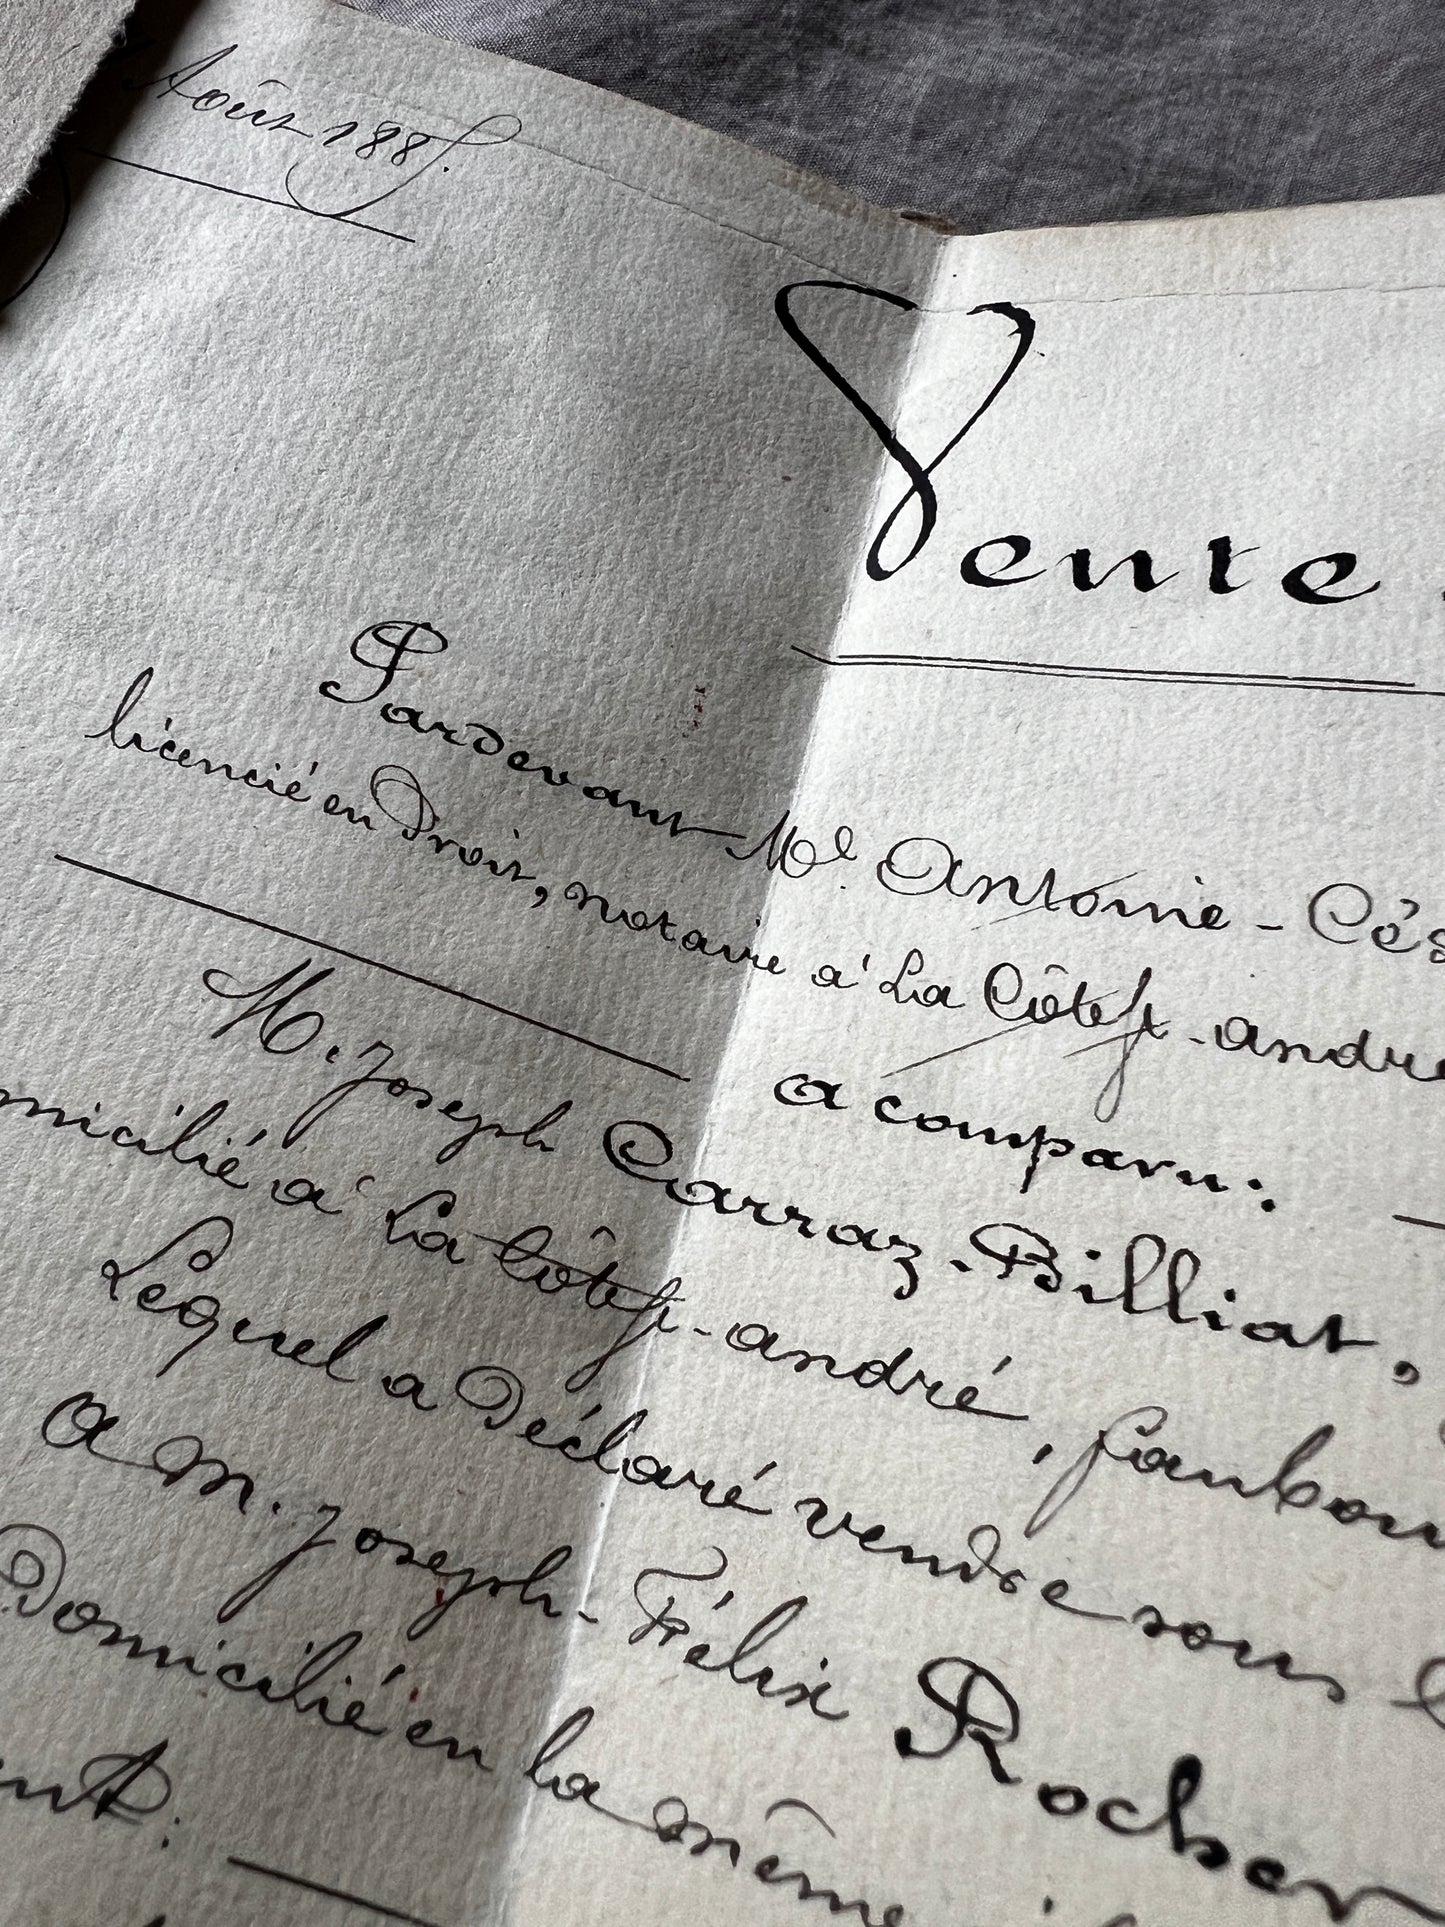 Août 1885.
Vente
Pardevant Me. Antoine-Cés
licencié en Droit, notaire à La Côte St-andré
a comparu:
M. Joseph Carraz-Billiat,
micilié à La Côte St-andré, faubour
Lequel a Déclaré vendre sous l
a M. Joseph-Félix Rocher
Domicilié en la même